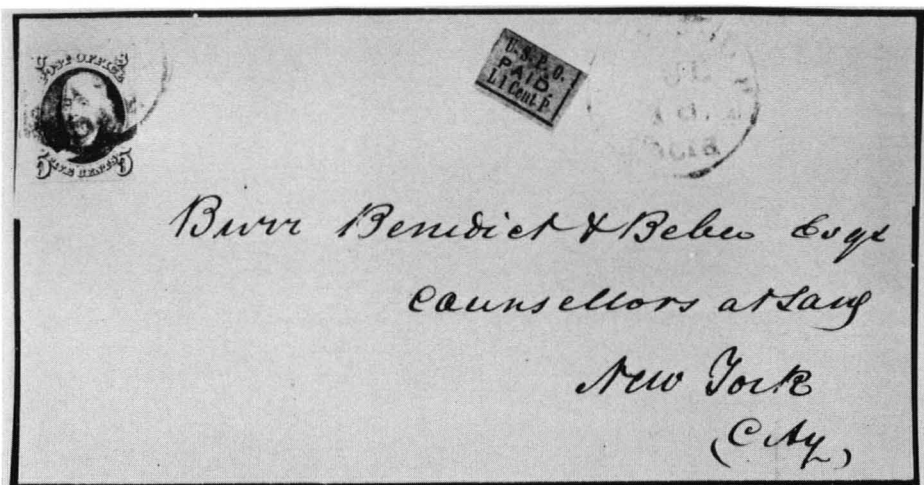 U S
POST OFFICE
5 5
U.S.P.O.
PAID
1 Cent.
Burr Benedict & Beebe Esqs
Counsellors at Law
New York
(City)